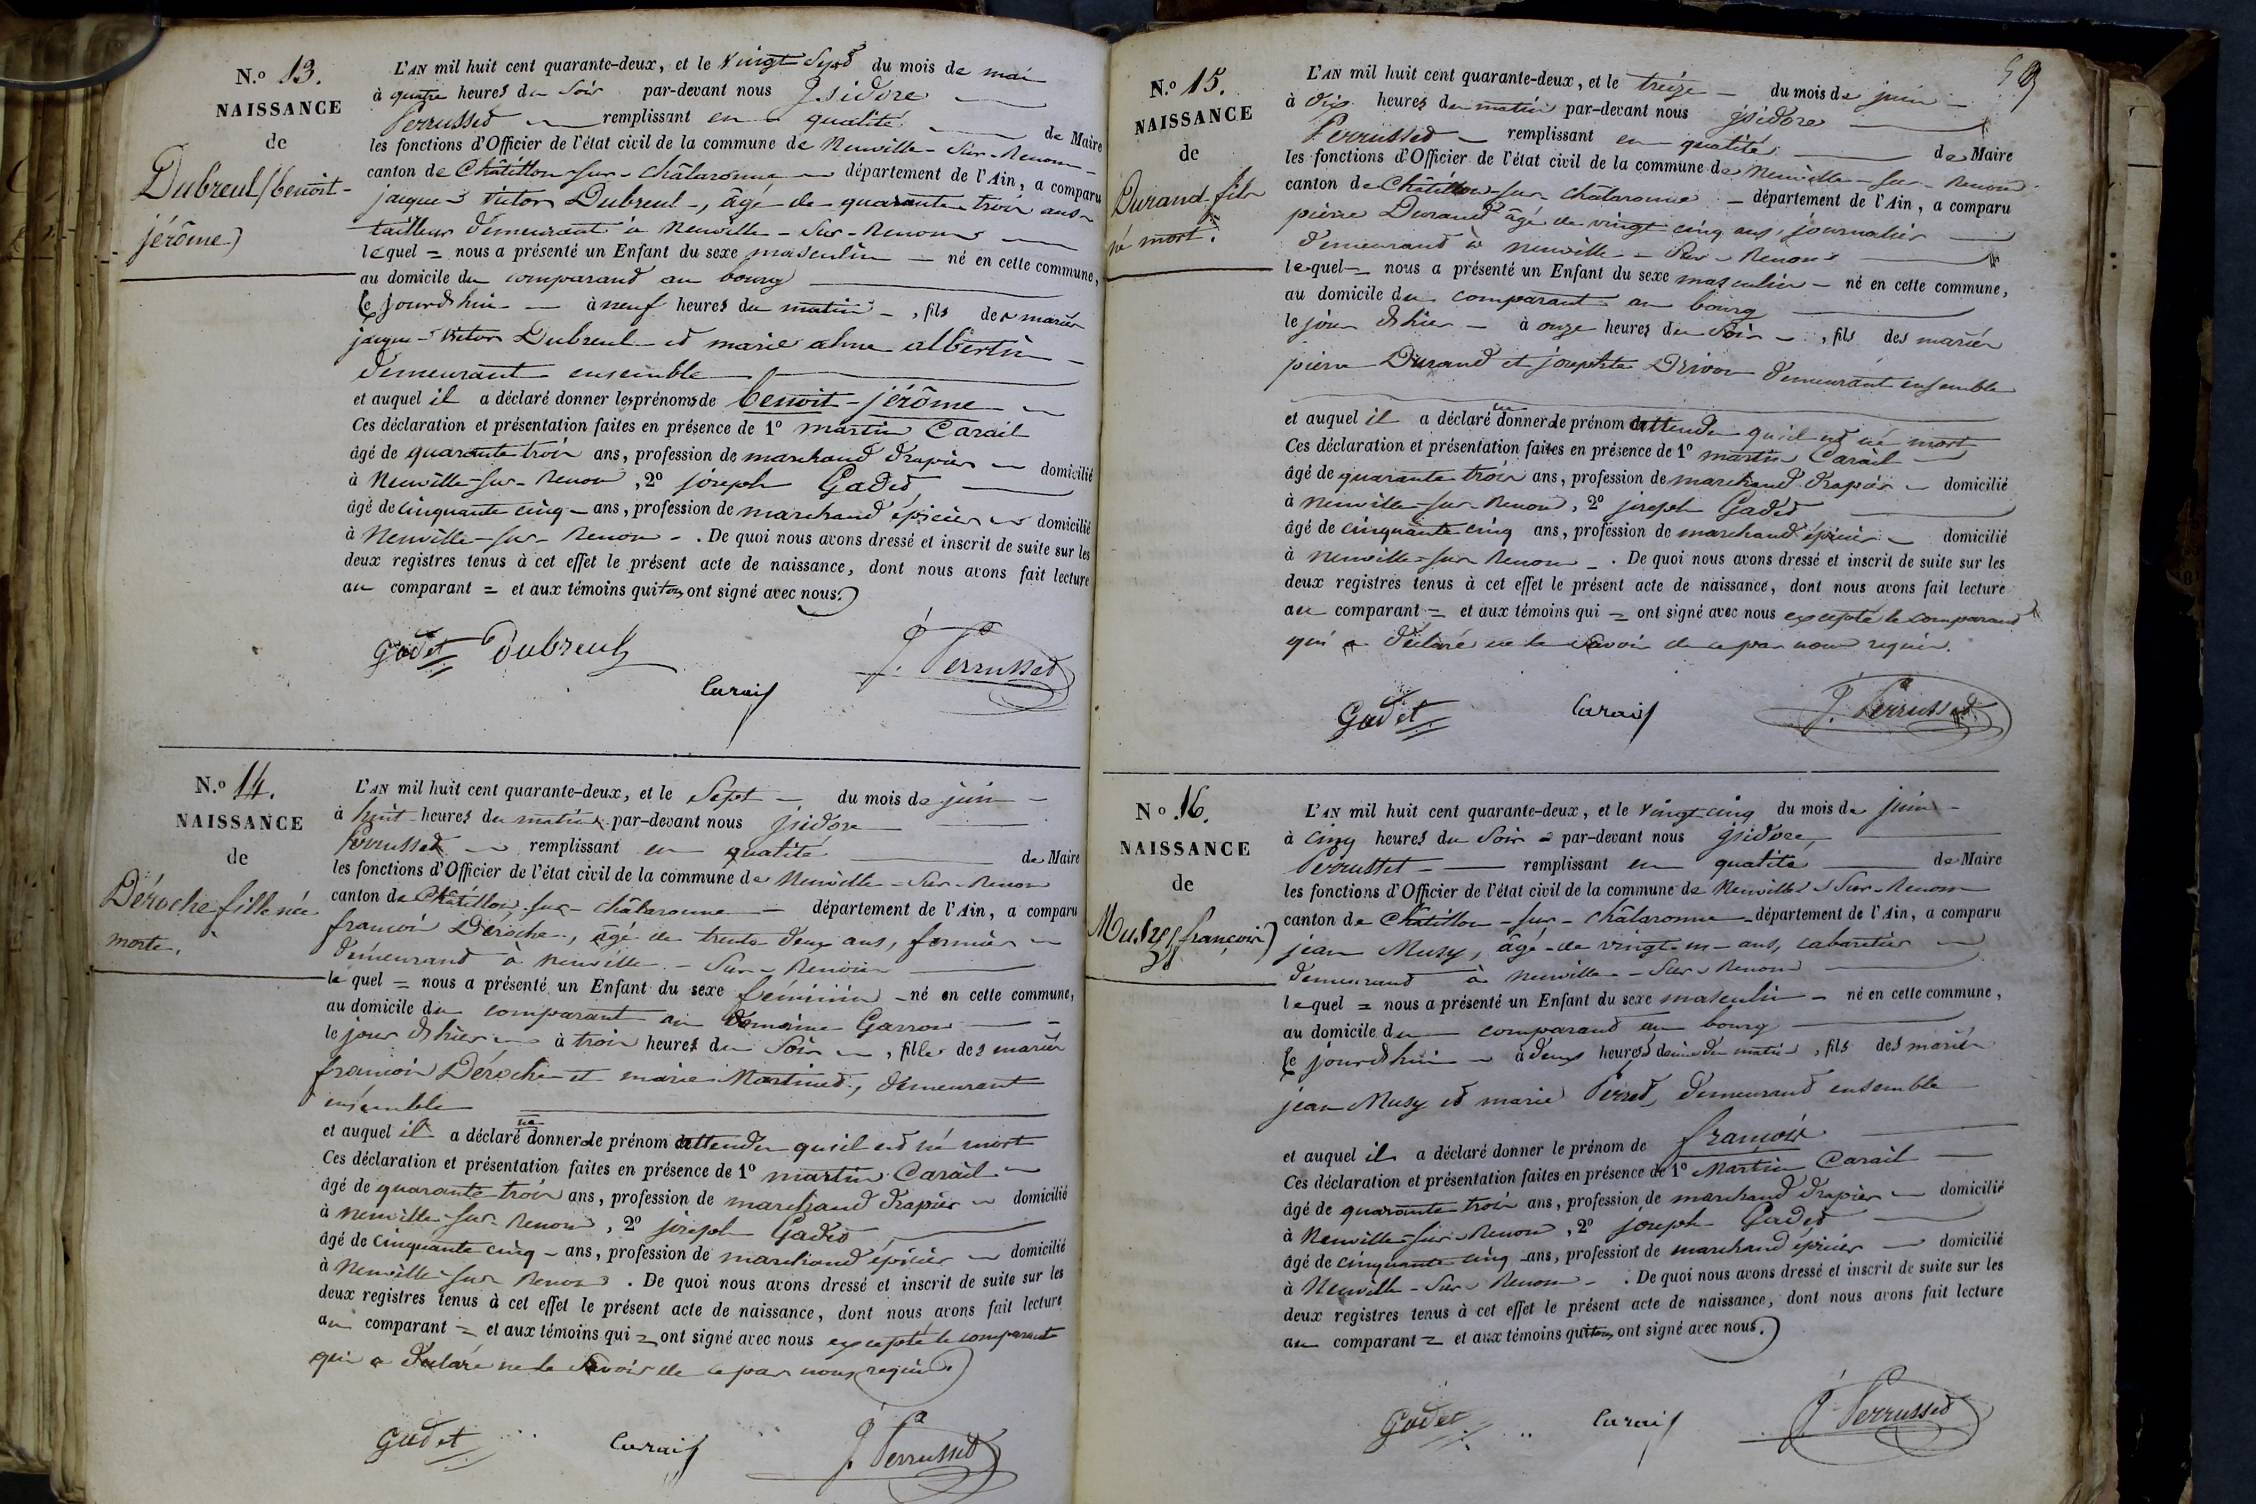 N.o 13.
NAISSANCE
de
Dubreul (benoit-
jérôme)
L'AN mil huit cent quarante-deux, et le vingt Sept du mois de mai
à quatre heures du Soir par-devant nous Jsidore
Perrusset remplissant en qualité de Maire
les fonctions d'Officier de l'état civil de la commune de Neuville-Sur-Renom
canton de Châtillon-sur-châlaronne département de l'Ain, a comparu
jacques victor Dubreul, âgé de quarante trois ans
tailleur demeurant à Neuville-Sur-Renom
lequel = nous a présenté un Enfant du sexe masculin né en cette commune,
au domicile du comparand au bourg
Ce jourd'hui à neuf heures du matin, fils des mariés
jacques victor Dubreul et marie albertin
demeurant ensemble
et auquel il a déclaré donner les prénoms de benoit-jérôme
Ces déclaration et présentation faites en présence de 1o martin Carail
âgé de quarante trois ans, profession de marchand drapier domicilié
à Neuville-sur-Renom, 2o joseph Gadet
âgé de cinquante cinq ans, profession de marchand épicier domicilié
à Neuville-sur-Renom. De quoi nous avons dressé et inscrit de suite sur les
deux registres tenus à cet effet le présent acte de naissance, dont nous avons fait lecture
au comparant = et aux témoins qui tous ont signé avec nous.
Gadet Dubreul J. Perrusset
Carail
N.o 14.
NAISSANCE
de
Déroche fille née
morte.
L'AN mil huit cent quarante-deux, et le Sept du mois de juin
à huit heures du matin par-devant nous Jsidore
Perrusset remplissant en qualité de Maire
les fonctions d'Officier de l'état civil de la commune de Neuville-Sur-Renom
canton de Châtillon-sur-châlaronne département de l'Ain, a comparu
françois Déroche, âgé de trente deux ans, fermier
demeurand à Neuville-Sur-Renom
lequel = nous a présenté un Enfant du sexe féminin né en cette commune,
au domicile du comparant au domaine Garron
le jour d'hier à trois heures du Soir, fille des mariés
françois Déroche et marie Martinet, demeurant
ensemble
et auquel il a déclaré ne donner de prénom attendu qu'il est né mort
Ces déclaration et présentation faites en présence de 1o martin Carail
âgé de quarante trois ans, profession de marchand drapier domicilié
à Neuville-sur-Renom, 2o joseph Gadet
âgé de cinquante cinq ans, profession de marchand épicier domicilié
à Neuville-sur-Renom. De quoi nous avons dressé et inscrit de suite sur les
deux registres tenus à cet effet le présent acte de naissance, dont nous avons fait lecture
au comparant = et aux témoins qui = ont signé avec nous excepté le comparant
qui a déclaré ne le Savoir de ce par nous requis.
Gadet Carail J. Perrusset
59
N.o 15.
NAISSANCE
de
Durand fils
né mort.
L'AN mil huit cent quarante-deux, et le treize du mois de juin
à dix heures du matin par-devant nous jsidore
Perrusset remplissant en qualité de Maire
les fonctions d'Officier de l'état civil de la commune de Neuville-sur-Renom
canton de Châtillon-sur-châlaronne département de l'Ain, a comparu
pierre Durand âgé de vingt cinq ans, journalier
demeurand à neuville-Sur-Renom
lequel nous a présenté un Enfant du sexe masculin né en cette commune,
au domicile du comparant au bourg
le jour d'hier à onze heures du Soir, fils des mariés
pierre Durand et josephte Drivon demeurant ensemble
et auquel il a déclaré ne donner de prénom attendu qu'il est né mort
Ces déclaration et présentation faites en présence de 1o martin Carail
âgé de quarante trois ans, profession de marchand drapier domicilié
à Neuville-sur-Renom, 2o joseph Gadet
âgé de cinquante cinq ans, profession de marchand épicier domicilié
à Neuville-sur-Renom. De quoi nous avons dressé et inscrit de suite sur les
deux registres tenus à cet effet le présent acte de naissance, dont nous avons fait lecture
au comparant = et aux témoins qui = ont signé avec nous excepté le comparand
qui a déclaré ne le Savoir de ce par nous requis.
Gadet Carail J. Perrusset
No 16.
NAISSANCE
de
Musy (françois)
L'AN mil huit cent quarante-deux, et le vingt cinq du mois de juin
à cinq heures du Soir par-devant nous jsidore
Perrusset remplissant en qualité de Maire
les fonctions d'Officier de l'état civil de la commune de Neuville-Sur-Renom
canton de Châtillon-sur-châlaronne département de l'Ain, a comparu
jean Musy, âgé de vingt-un ans, cabaretier
demeurand à Neuville-Sur-Renom
lequel = nous a présenté un Enfant du sexe masculin né en cette commune,
au domicile du comparand au bourg
Ce jourd'hui à deux heures & demie du matin, fils des mariés
jean Musy et marie Perret, demeurand ensemble
et auquel il a déclaré donner le prénom de françois
Ces déclaration et présentation faites en présence de 1o Martin Carail
âgé de quarante trois ans, profession de marchand drapier domicilié
à Neuville-sur-Renom, 2o joseph Gadet
âgé de cinquante cinq ans, profession de marchand épicier domicilié
à Neuville-Sur-Renom. De quoi nous avons dressé et inscrit de suite sur les
deux registres tenus à cet effet le présent acte de naissance, dont nous avons fait lecture
au comparant = et aux témoins qui tous ont signé avec nous.
Gadet Carail J. Perrusset